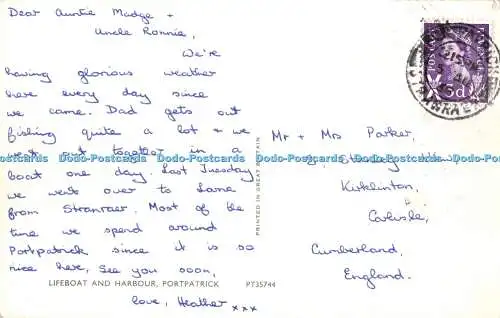 Dear Auntie Madge +
Uncle Ronnie,
We're
having glorious weather
here every day since
we came. Dad gets out
fishing quite a lot & we
went out together in a
boat one day. Last Tuesday
we went over to Larne
from Stranraer. Most of the
time we spend around
Portpatrick since it is so
nice here, See you soon,
LIFEBOAT AND HARBOUR, PORTPATRICK PT35744
love, Heather xxx
PRINTED IN GREAT BRITAIN
POSTAGE
3d
STRANRAER
Mr + Mrs Parker,
Kirklinton,
Carlisle,
Cumberland,
England.
Dodo-Postcards Dodo-Postcards Dodo-Postcards Dodo-Postcards Dodo-Postcards